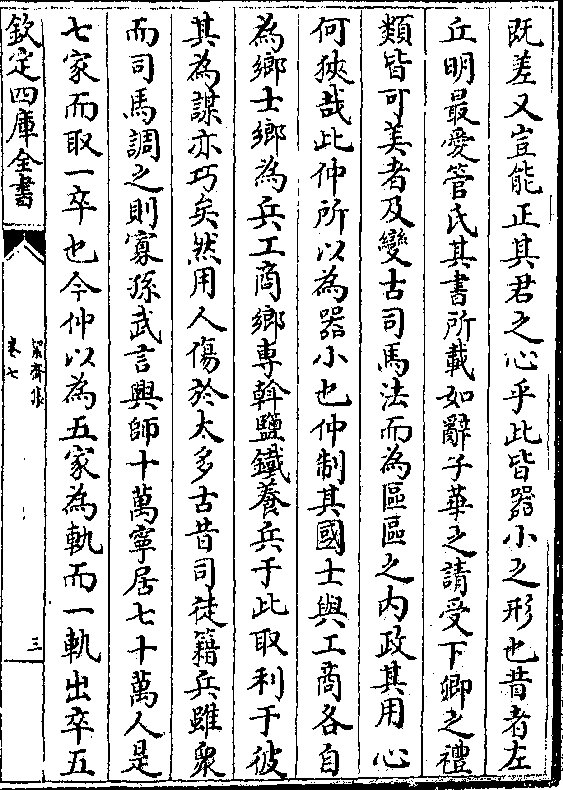 既差又豈能正其君之心乎此皆器小之形也昔者左
丘明最愛管氏其書所載如辭子華之請受下卿之禮
類皆可美者及變古司馬法而為區區之内政其用心
何狹哉此仲所以為器小也仲制其國士與工商各自
為鄉士鄉為兵工商鄉專斡鹽鐵養兵于此取利于彼
其為謀亦巧矣然用人傷於太多古昔司徒籍兵雖衆
而司馬調之則寡孫武言興師十萬寧居七十萬人是
七家而取一卒也今仲以為五家為軌而一軌出卒五
欽定四庫全書
絜齋集
卷七
三